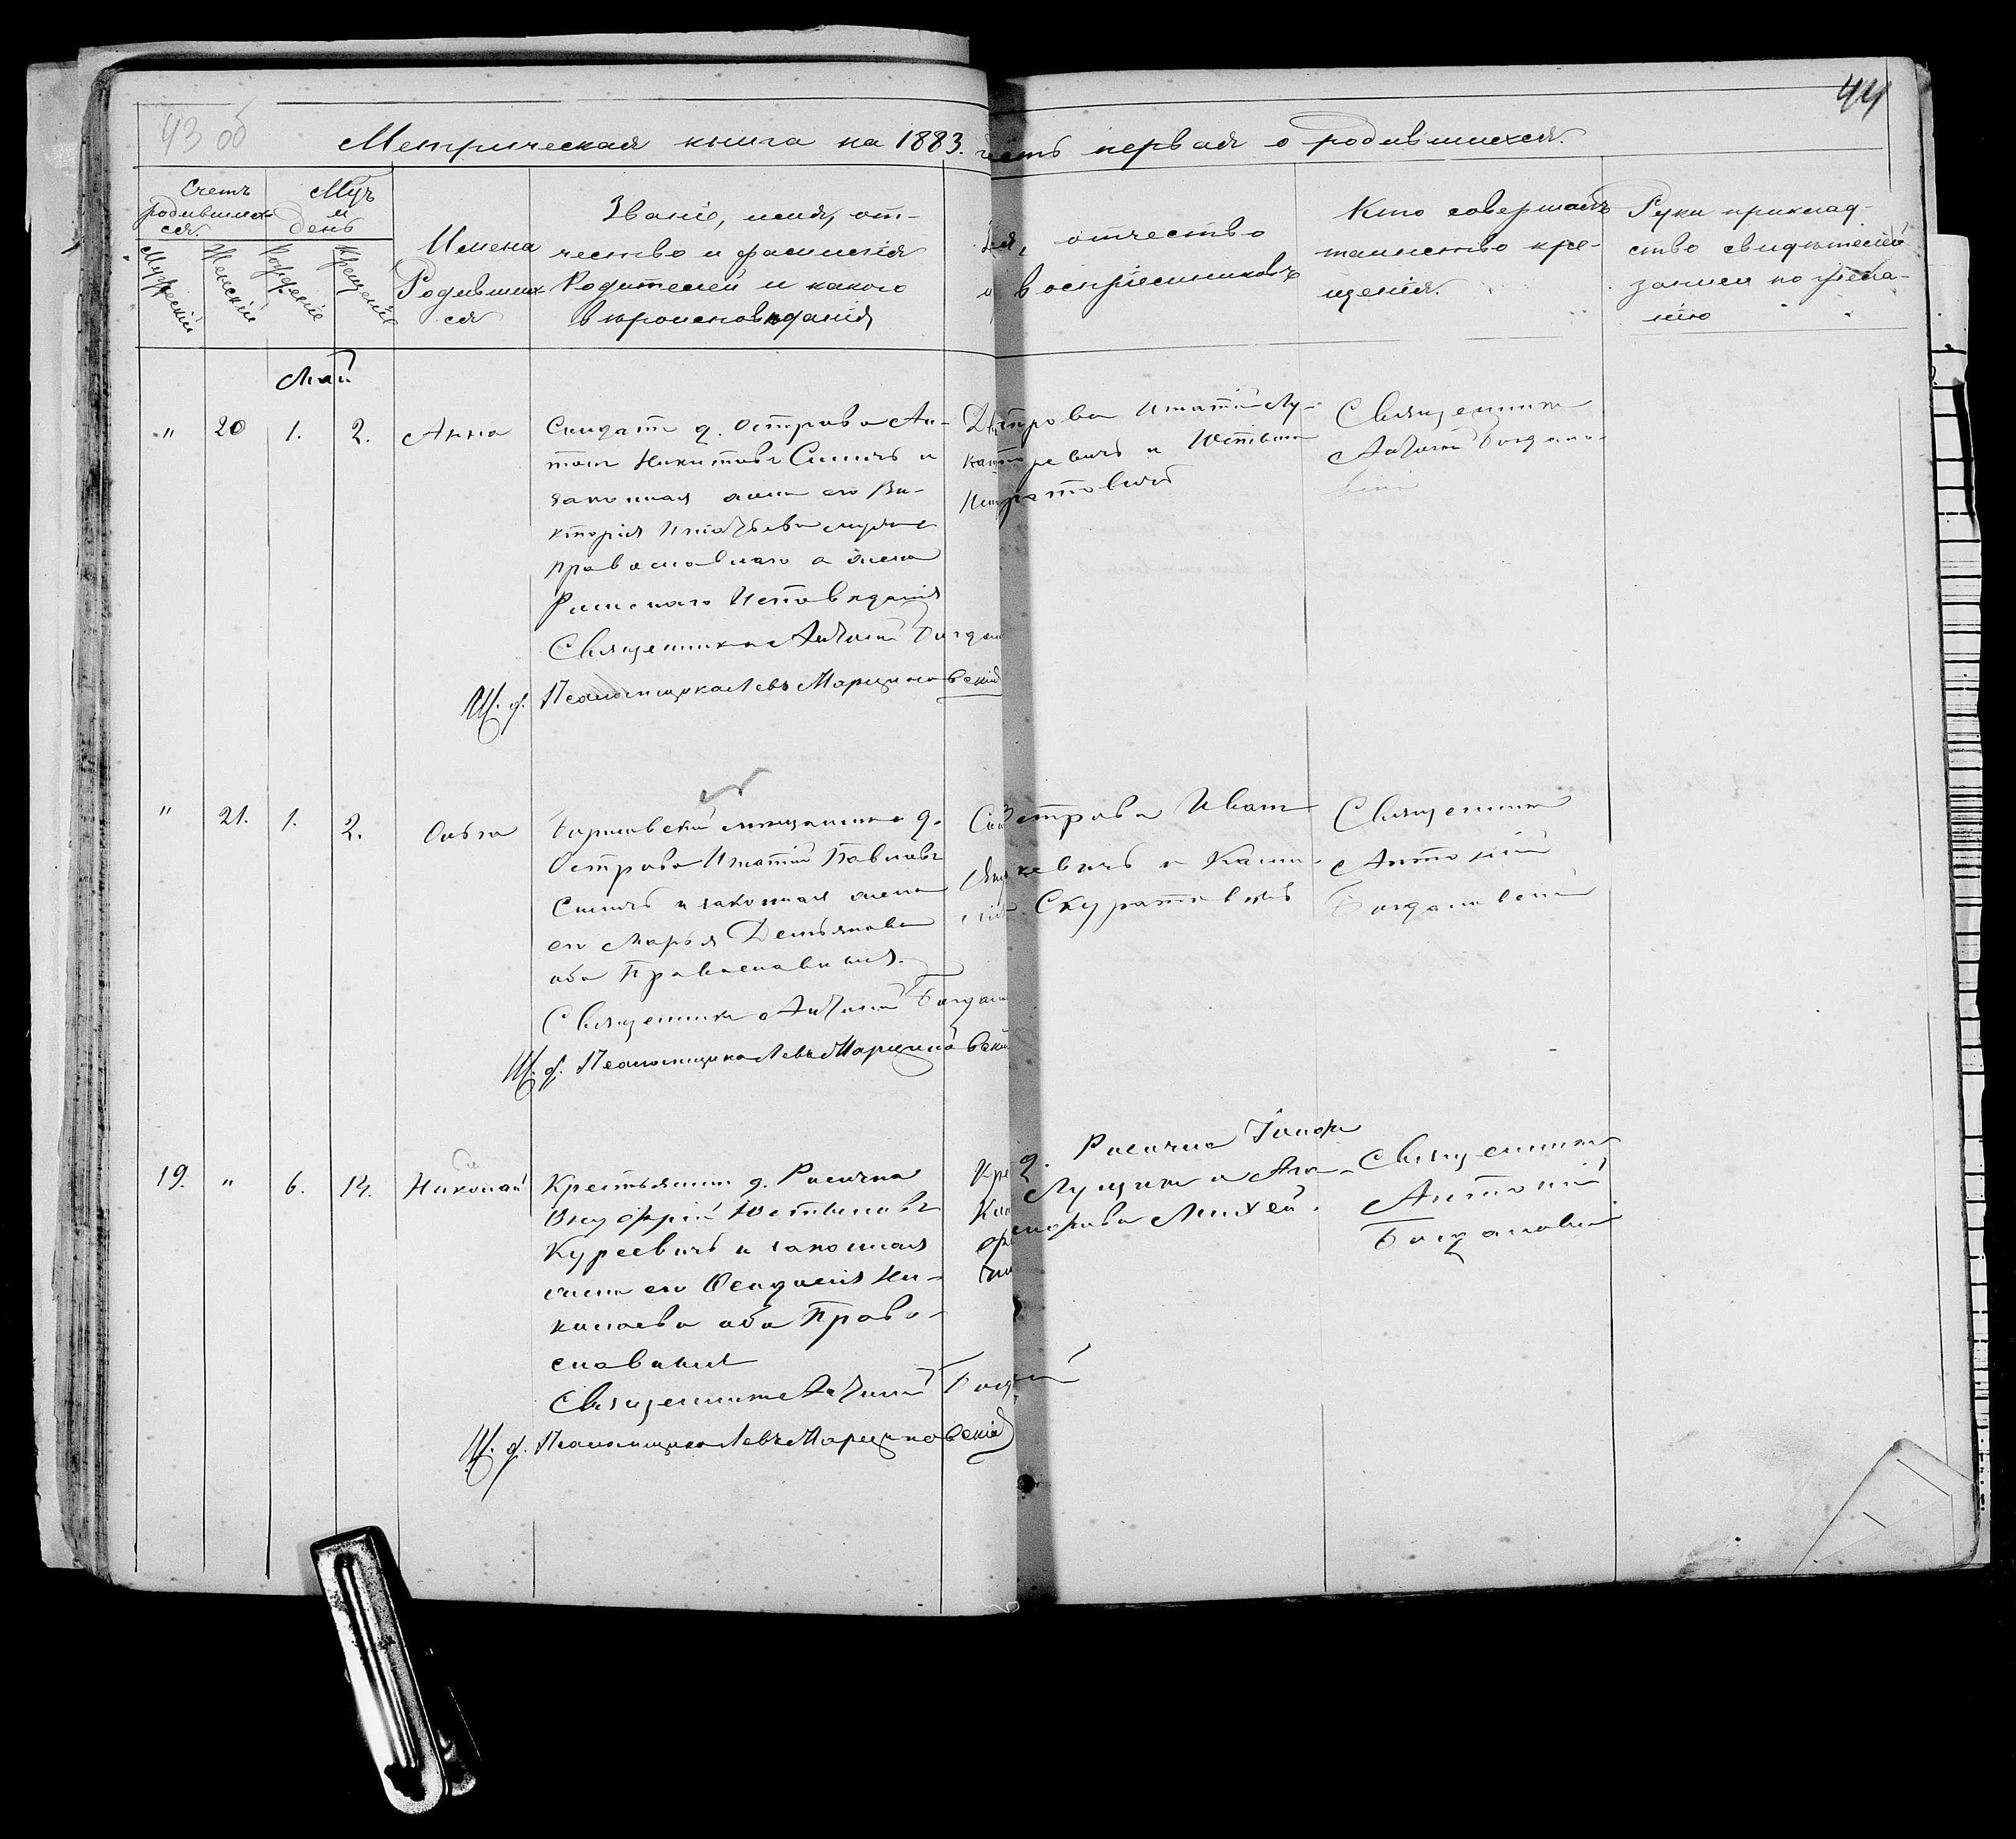 43 об
44
Метрическая книга на 1883. часть первая о родившихся.
Счетъ родившихся.
Мужескій
Женскій
Мцъ и день
Рожденіе
Крещеніе
Имена
Родившихся
Званіе, имя, от-
чество и фамилія
Родителей и какого
вѣроисповѣданія
отчество
воспріемниковъ
Кто совершалъ
таинство кре-
щенія.
Рукоприклад-
ство свидѣтелей
записи по жела-
нію
Май
" 20 1. 2. Анна
Солдатъ д. Острова Ан-
тонъ Никитовъ Синичъ и
законная жена его Ви-
кторія Игнатьева мужъ
православнаго а жена
Римскаго Исповѣданія
Священникъ Антоній Богдан
И. д. Псаломщика Левъ Марциновскій
Острова Игнатій Лу-
и Устинья
Священникъ
Антоній Богдано-
вскій
" 21. 1. 2. Ольга
Борисовскій мѣщанинъ д.
Острова Игнатій Павловъ
Синичъ и законная жена
его Марья Демьянова
оба Православныя.
Священникъ Антоній Богдан
И. д. Псаломщика Левъ Марциновскій
Острова Иванъ
Скуратовичъ
Священникъ
Антоній
Богдановскій
19. " 6. 14. Николай
Крестьянинъ д. Расична
Онуфрій Устиновъ
Куреевичъ и законная
жена его Феодосія Ни-
колаева оба Право-
славныя
Священникъ Антоній Богд
И. д. Псаломщика Левъ Марциновскій
д. Расична
Лущикъ и
Михей.
Священникъ
Антоній
Богдановскій